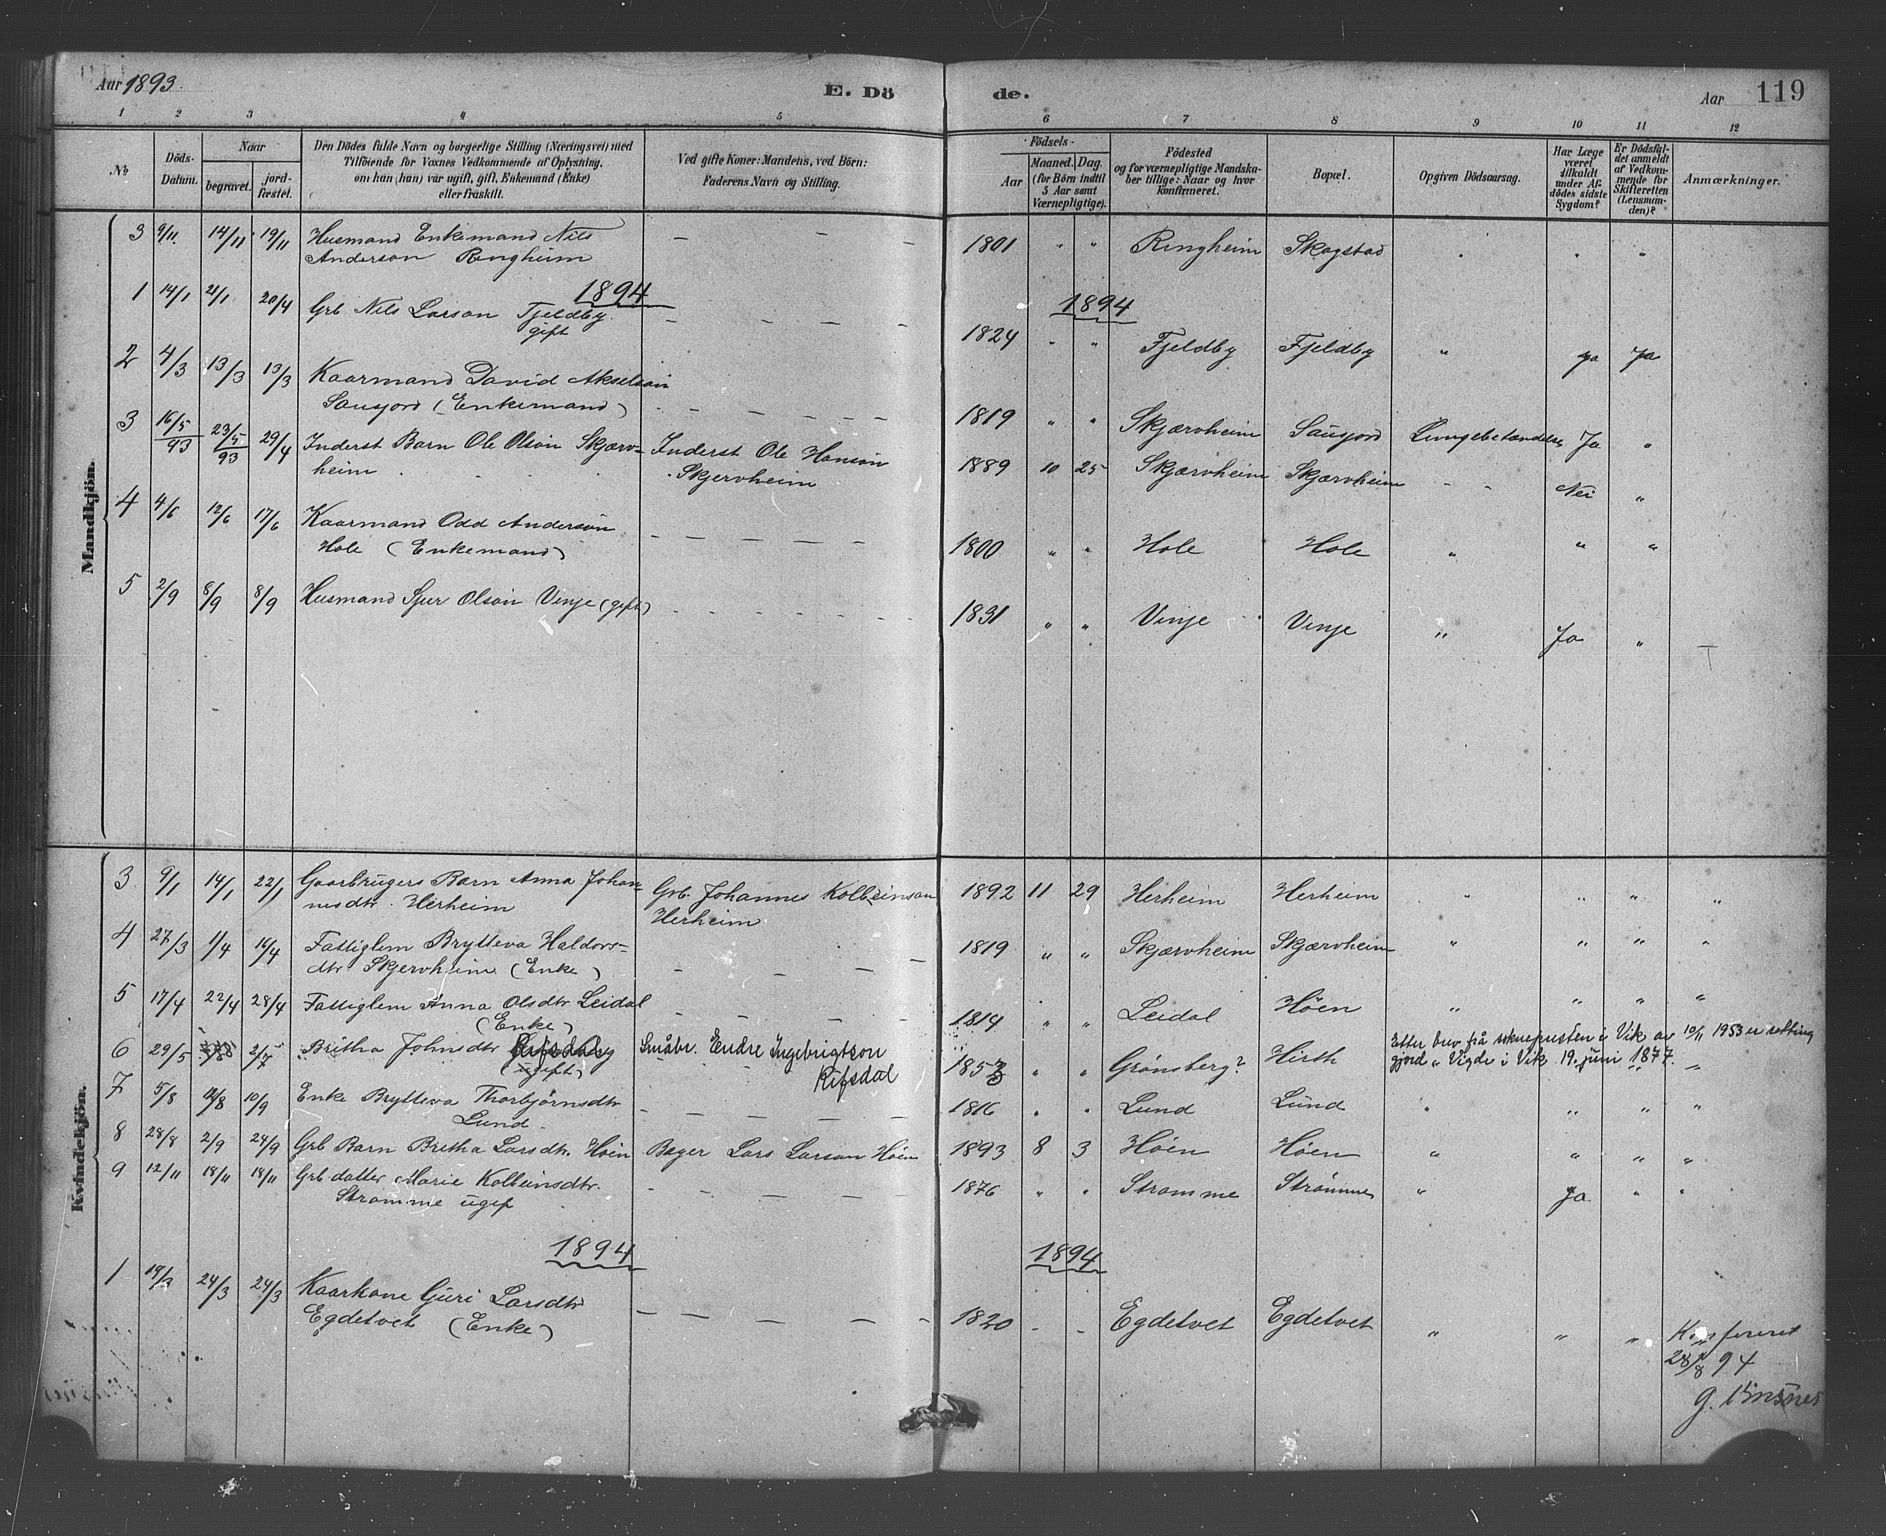 Aar 1893. E. Dö de. Aar 119
1 2 3 4 5 6 7 8 9 10 11 12
No.
Döds-Datum.
Naar
begravet.
jord-fæstet.
Den Dödes fulde Navn og borgerlige Stilling (Næringsvei) med
Tilföiende for Voxnes Vedkommende af Oplysning,
om han (hun) var ugift, gift, Enkemand (Enke)
eller fraskilt.
Ved gifte Koner: Mandens, ved Börn:
Faderens Navn og Stilling.
Födsels-
Aar
Maaned. Dag.
(for Börn indtil
5 Aar samt
Værnepligtige).
Födested
og for værnepligtige Mandska-
ber tillige: Naar og hvor
Konfirmeret.
Bopæl.
Opgiven Dödsaarsag.
Har Læge
været
tilkaldt
under Af-
dödes sidste
Sygdom?
Er Dödsfal-
det anmeldt
af Vedkom-
mende for
Skifteretten
(Lensman-
den)?
Anmærkninger.
Mandkjön.
3 9/11. 14/11 19/11 Husmand Enkemand Nils — — — 1801 " " Ringheim Skogstad " " "
Anderson Ringheim
1894 1894
1 14/1 21/1 20/4 Grb Nils Larson Fjeldby. — — — — 1824 " " Fjeldby Fjeldby " ja Ja
gift
2 4/3 13/3 13/3 Kaarmand David Akselson
Sausjord (Enkemand) — — — — 1819 " " Skjærvheim Sausjord Lungebetændelse Ja "
3 16/5 93 23/5 93 29/4 Inderst Barn Ole Olson Skjærv- Inderst Ole Hanson 1889 10 25 Skjærvheim Skjærvheim - - Nei "
heim Skjervheim
4 4/6 12/6 17/6 Kaarmand Odd Anderson — — — — 1800 " " Hole Hole " " "
Hole (Enkemand)
5 2/9 8/9 8/9 Husmand Sjur Olson Vinje (gift) — — — — 1831 " " Vinje Vinje " Ja "
Kvindekjön.
3 9/1 14/1 22/1 Gaarbrugers Barn Anna Johan- Grb. Johannes Kolbeinson 1892 11 29 Herheim Herheim " " " "
nesdtr. Herheim Herheim
4 27/3 1/4 14/4 Fattiglem Brytteva Haldors- — — — — 1819 " " Skjærvheim Skjærvheim " " " "
dtr Skjervheim (Enke)
5 17/4 22/4 28/4 Fattiglem Anna Olsdtr Leidal — — — — 1814 " " Leidal Höen " " " "
(Enke)
6 29/5 2/7 Britha Johnsdtr Småbr. Endre Ingebrigtson 1853 " " Grönsberg? Hirth Etter brev frå soknepresten i Vik av 10/11 1953 er retting
(gift) Rifsdal gjord " Vigde i Vik 19. juni 1877. "
7 5/8 12/8 10/9 Enke Brytteva Thorbjörnsdtr — — — — 1816 " " Lund Lund " " " "
Lund
8 28/8 2/9 24/9 Grb Barn Britha Larsdtr. Höen Bager Lars Larson Höen 1893 8 3 Höen Höen " " " "
9 12/11 18/11 18/11 Grb datter Marie Kolbeinsdtr. — — — — 1876 " " Strømme Strömme " Ja " "
Strømme ugift
1894 1894
1 19/3 24/3 24/3 Kaarkone Guri Larsdtr
Egdetvet (Enke) — — — — 1820 - - Egdetvet Egdetvet " " "
Konfereret
28/8 94